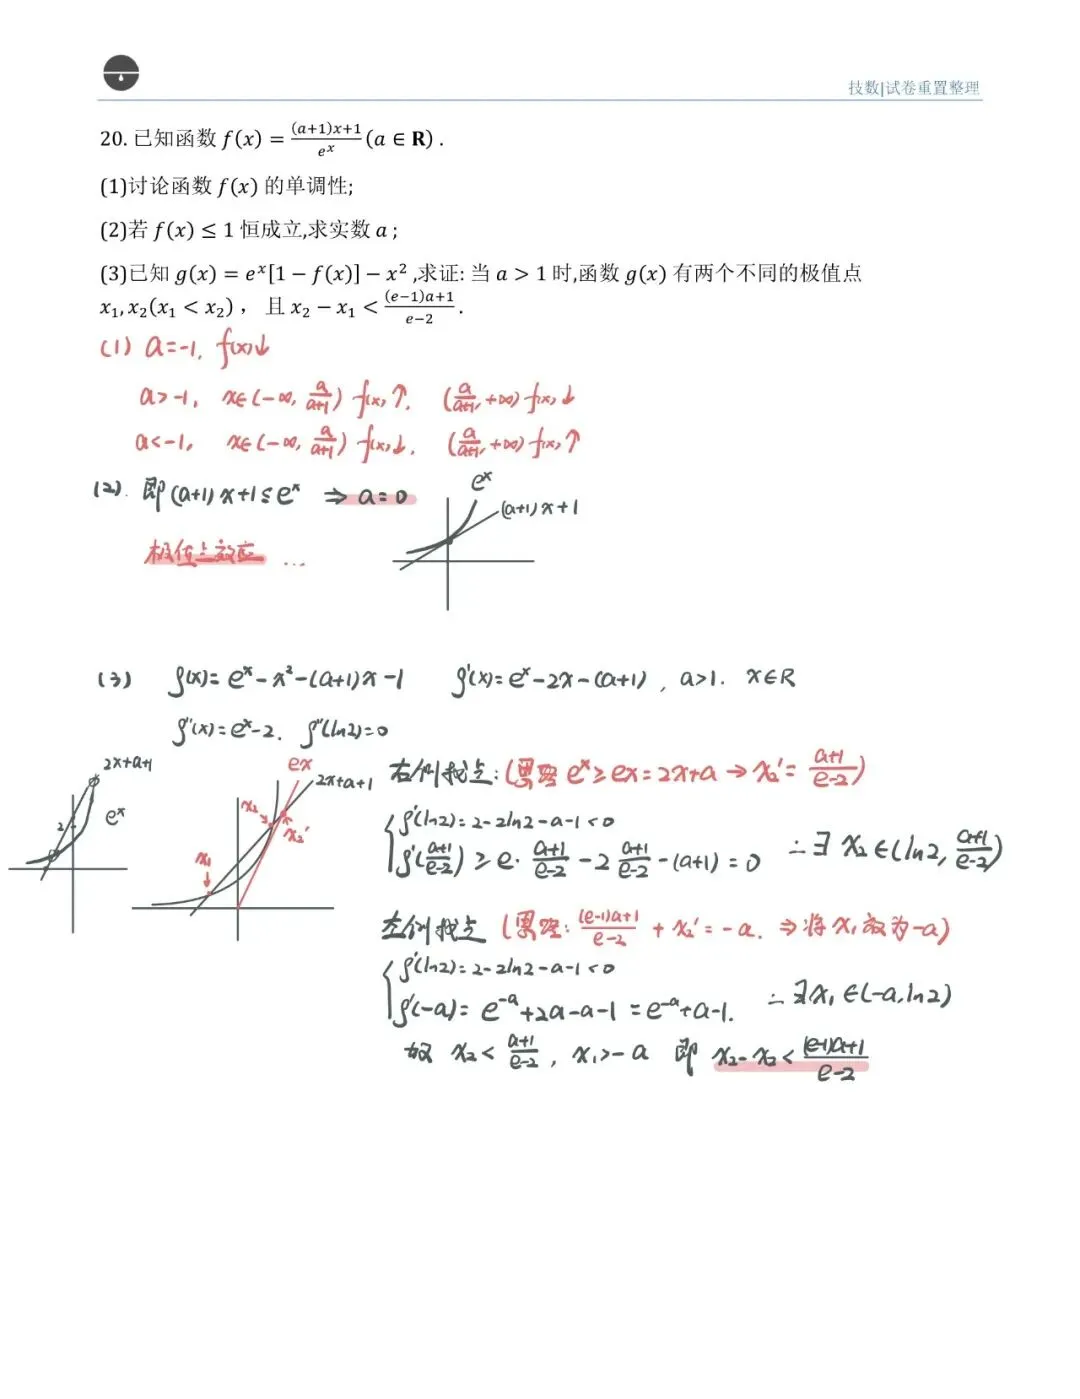 技数|试卷重置整理
20. 已知函数 f(x) = \frac{(a+1)x+1}{e^x} (a ∈ R) .
(1)讨论函数 f(x) 的单调性;
(2)若 f(x) ≤ 1 恒成立,求实数 a ;
(3)已知 g(x) = e^x[1 − f(x)] − x^2 ,求证: 当 a > 1 时,函数 g(x) 有两个不同的极值点
x_1, x_2(x_1 < x_2) ， 且 x_2 − x_1 < \frac{(e−1)a+1}{e−2} .
(1) a=-1, f(x)↓
a>-1, x∈(-∞, \frac{a}{a+1}) f(x)↑, (\frac{a}{a+1}, +∞) f(x)↓
a<-1, x∈(-∞, \frac{a}{a+1}) f(x)↓, (\frac{a}{a+1}, +∞) f(x)↑
(2). 即(a+1)x+1≤e^x ⇒ a=0
e^x
(a+1)x+1
极值点效应 ...
(3) g(x)= e^x-x^2-(a+1)x-1 g'(x)=e^x-2x-(a+1), a>1. x∈R
g''(x)=e^x-2. g''(ln2)=0
2x+a+1
e^x
2
ex
2x+a+1
x_2
x_2'
x_1
右侧找点:(思路 e^x≥ex=2x+a → x_2'=\frac{a+1}{e-2})
g'(ln2)=2-2ln2-a-1<0
g'(\frac{a+1}{e-2}) ≥ e·\frac{a+1}{e-2}-2\frac{a+1}{e-2}-(a+1)=0 ∴∃ x_2∈(ln2, \frac{a+1}{e-2})
左侧找点 (思路: \frac{(e-1)a+1}{e-2} + x_2'=-a. ⇒将x_1放为-a)
g'(ln2)=2-2ln2-a-1<0
g'(-a)= e^{-a}+2a-a-1=e^{-a}+a-1. ∴∃x_1∈(-a,ln2)
故 x_2<\frac{a+1}{e-2}, x_1>-a 即 x_2-x_2<\frac{(e-1)a+1}{e-2}